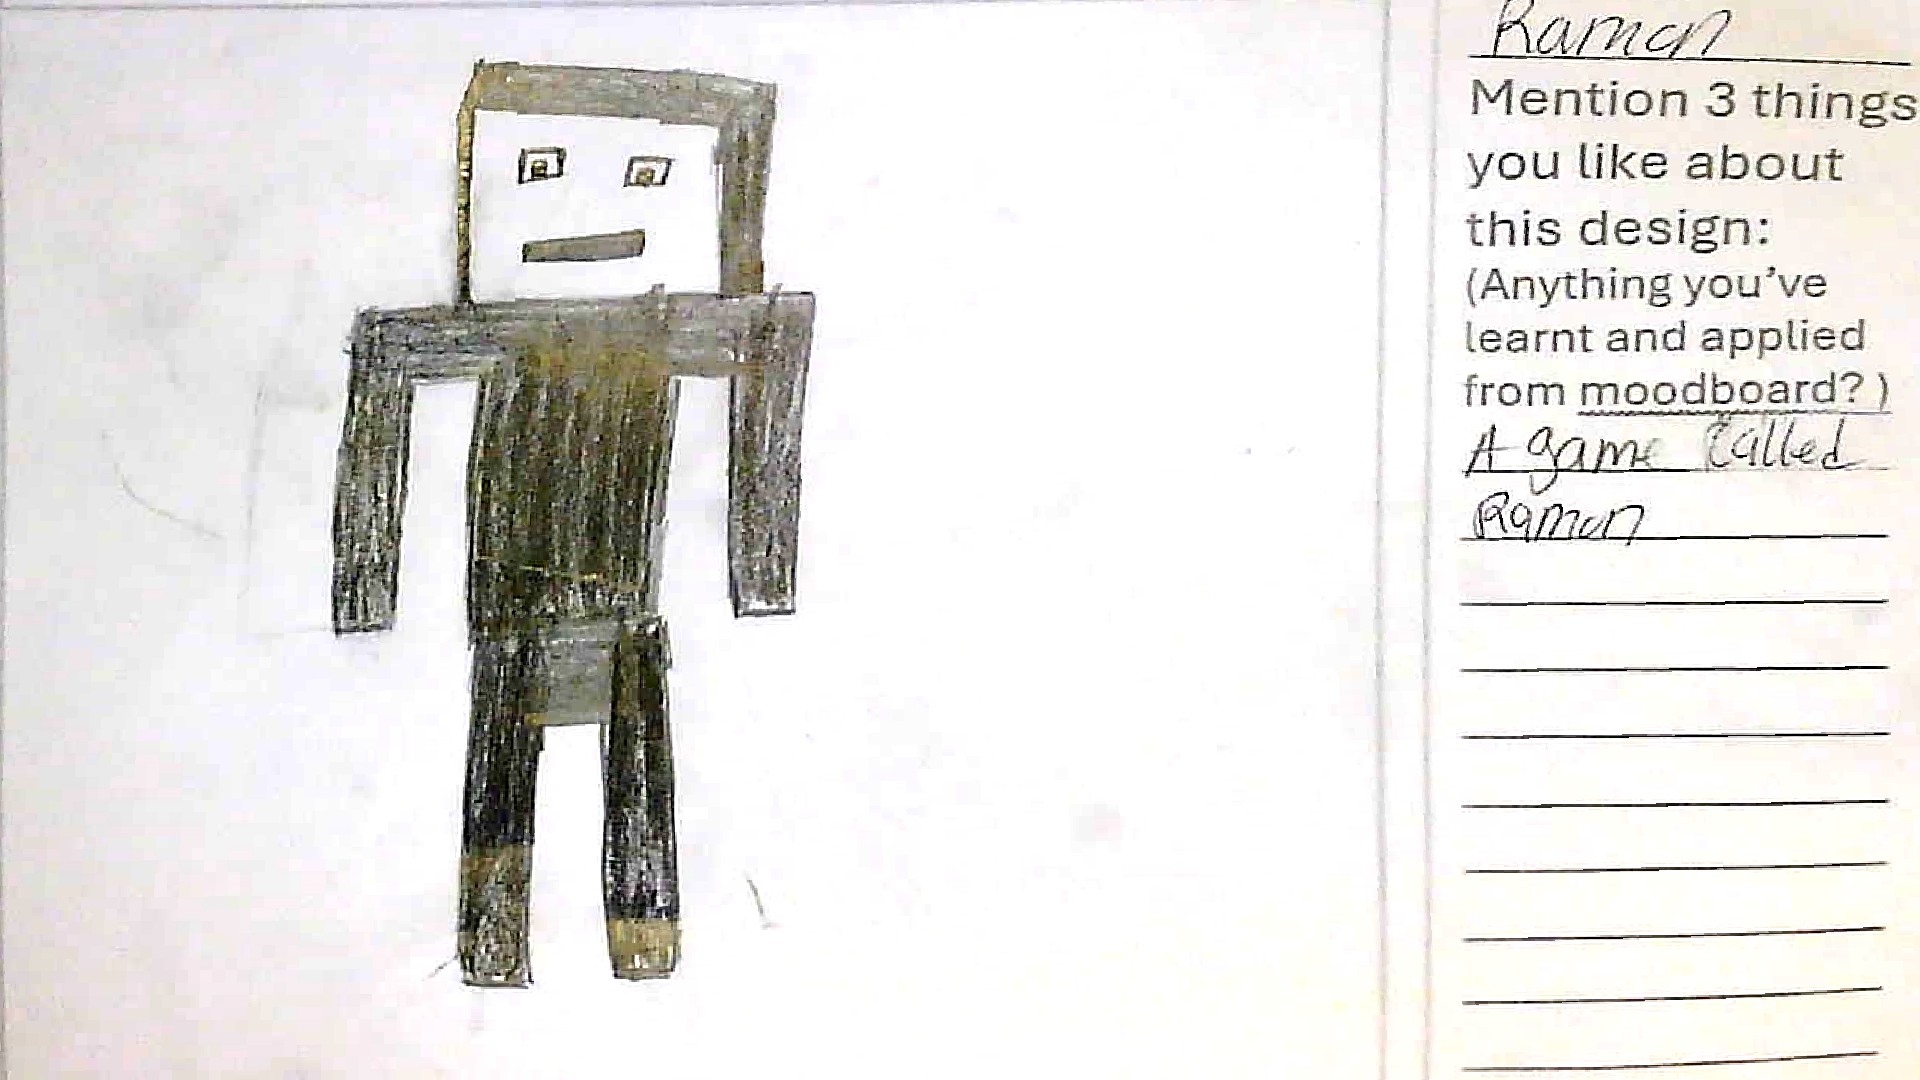 Ramon
Mention 3 things
you like about
this design:
(Anything you've
learnt and applied
from moodboard? )
A game Called
Ramon